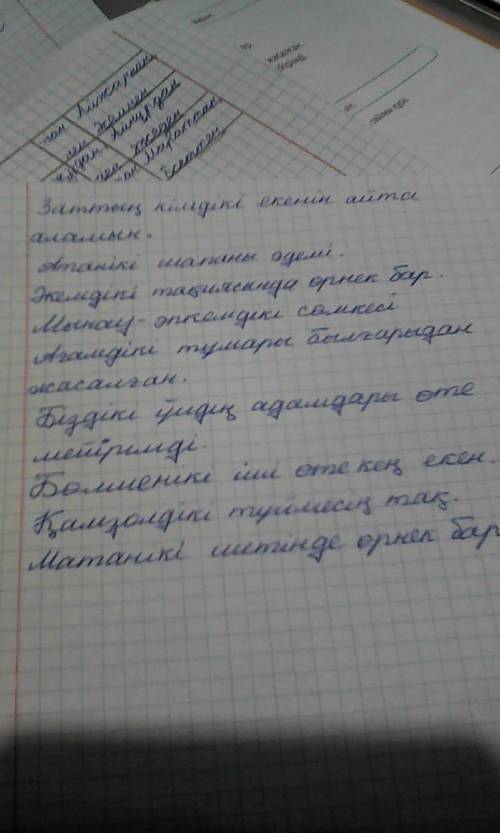 жасалған
Заттың кімдікі екенін айта
аламын.
Апанікі шапаны әдемі.
Әкемдікі тақиясында өрнек бар.
Мынау - әпкемдікі сөмкесі
Ағамдікі тұмары былғарыдан
жасалған.
Біздікі үйдің адамдары өте
мейірімді.
Бөлменікі іші өте кең екен.
Қамзолдікі түймесің тақ.
Матанікі шетінде өрнек бар